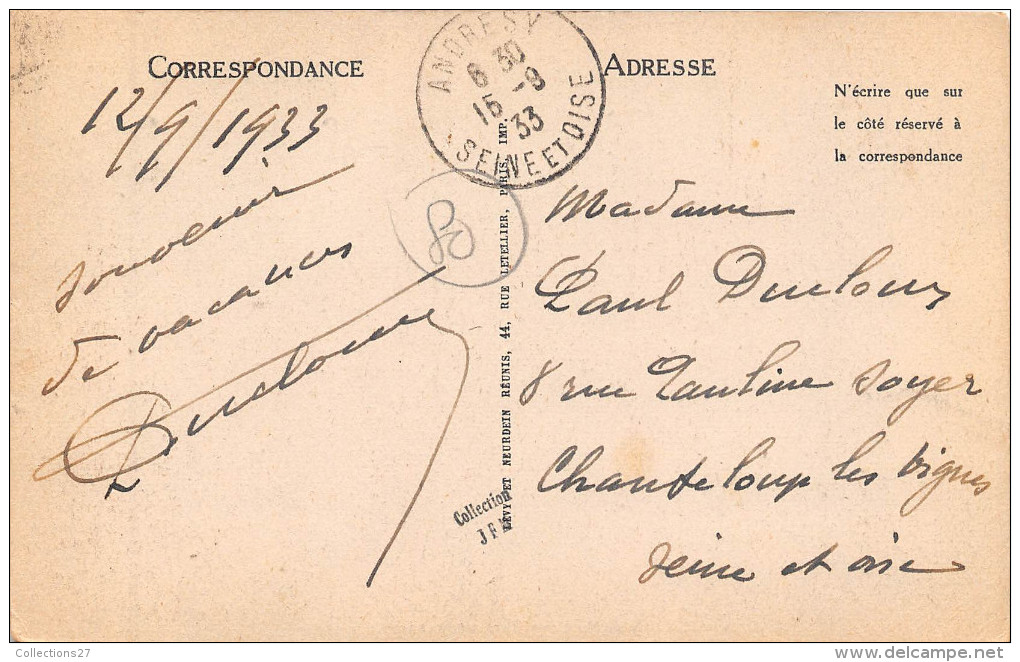 CORRESPONDANCE
12/9/1933
souvenir
de vacances
ANDRESY
6 30
15 -9
33
SEINE ET OISE
80
LÉVY ET NEURDEIN RÉUNIS, 44, RUE LETELLIER, PARIS, IMP.
Collection
ADRESSE
N'écrire que sur
le côté réservé à
la correspondance
Madame
Paul
8 rue Pauline Soyer
Chanteloup les Vignes
Seine et oise
Collections27
www.delcampe.net